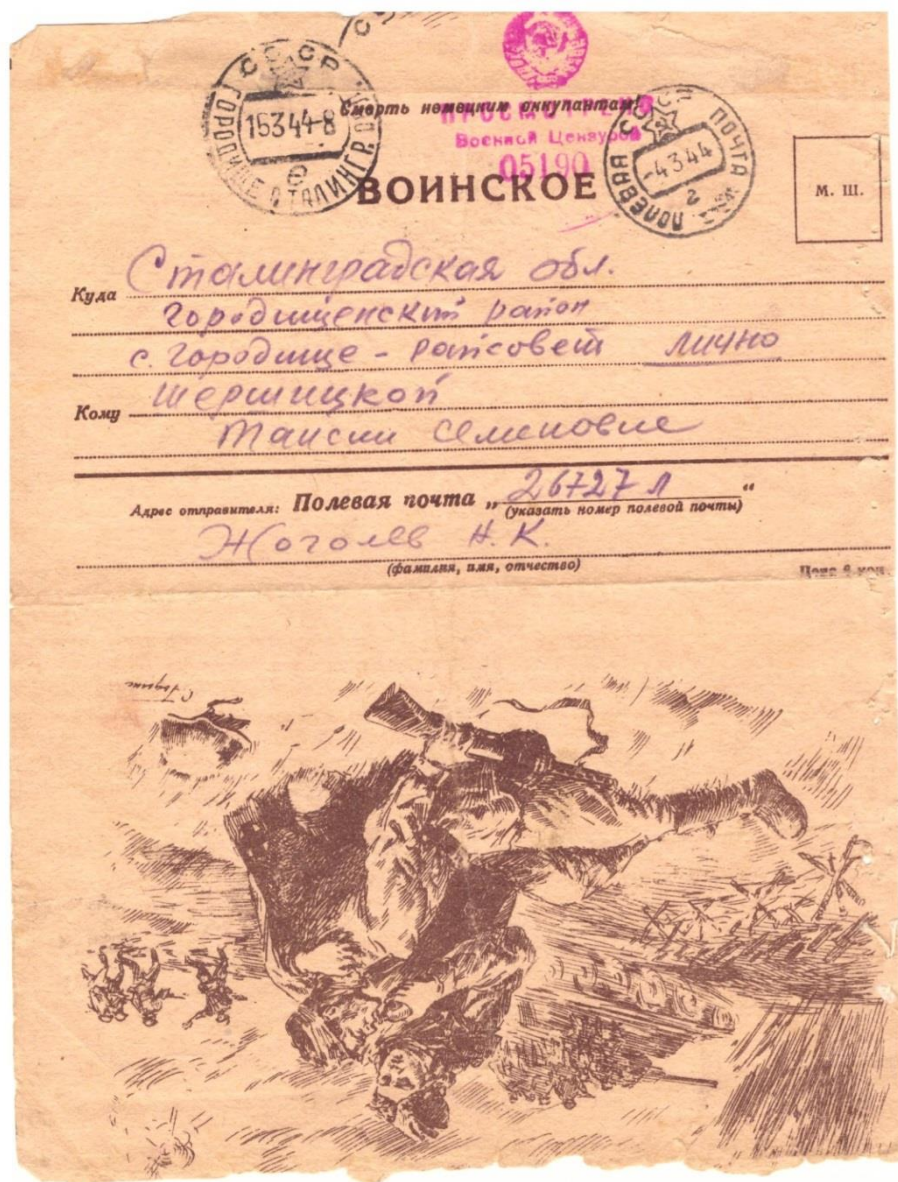 СССР
ГОРОДИЩЕ СТАЛИНГР. ОБЛ
15344-8
Смерть немецким оккупантам!
ПРОСМОТРЕНО
Военной Цензурой
05190
СССР
ПОЛЕВАЯ ПОЧТА
-4344
ВОИНСКОЕ
М. Ш.
Куда Сталинградская обл.
городищенский район
с. Городище - райсовет лично
Кому Шершицкой
Таисии Семеновне
Адрес отправителя: Полевая почта „26727 л“
(указать номер полевой почты)
Жоголев Н. К.
(фамилия, имя, отчество)